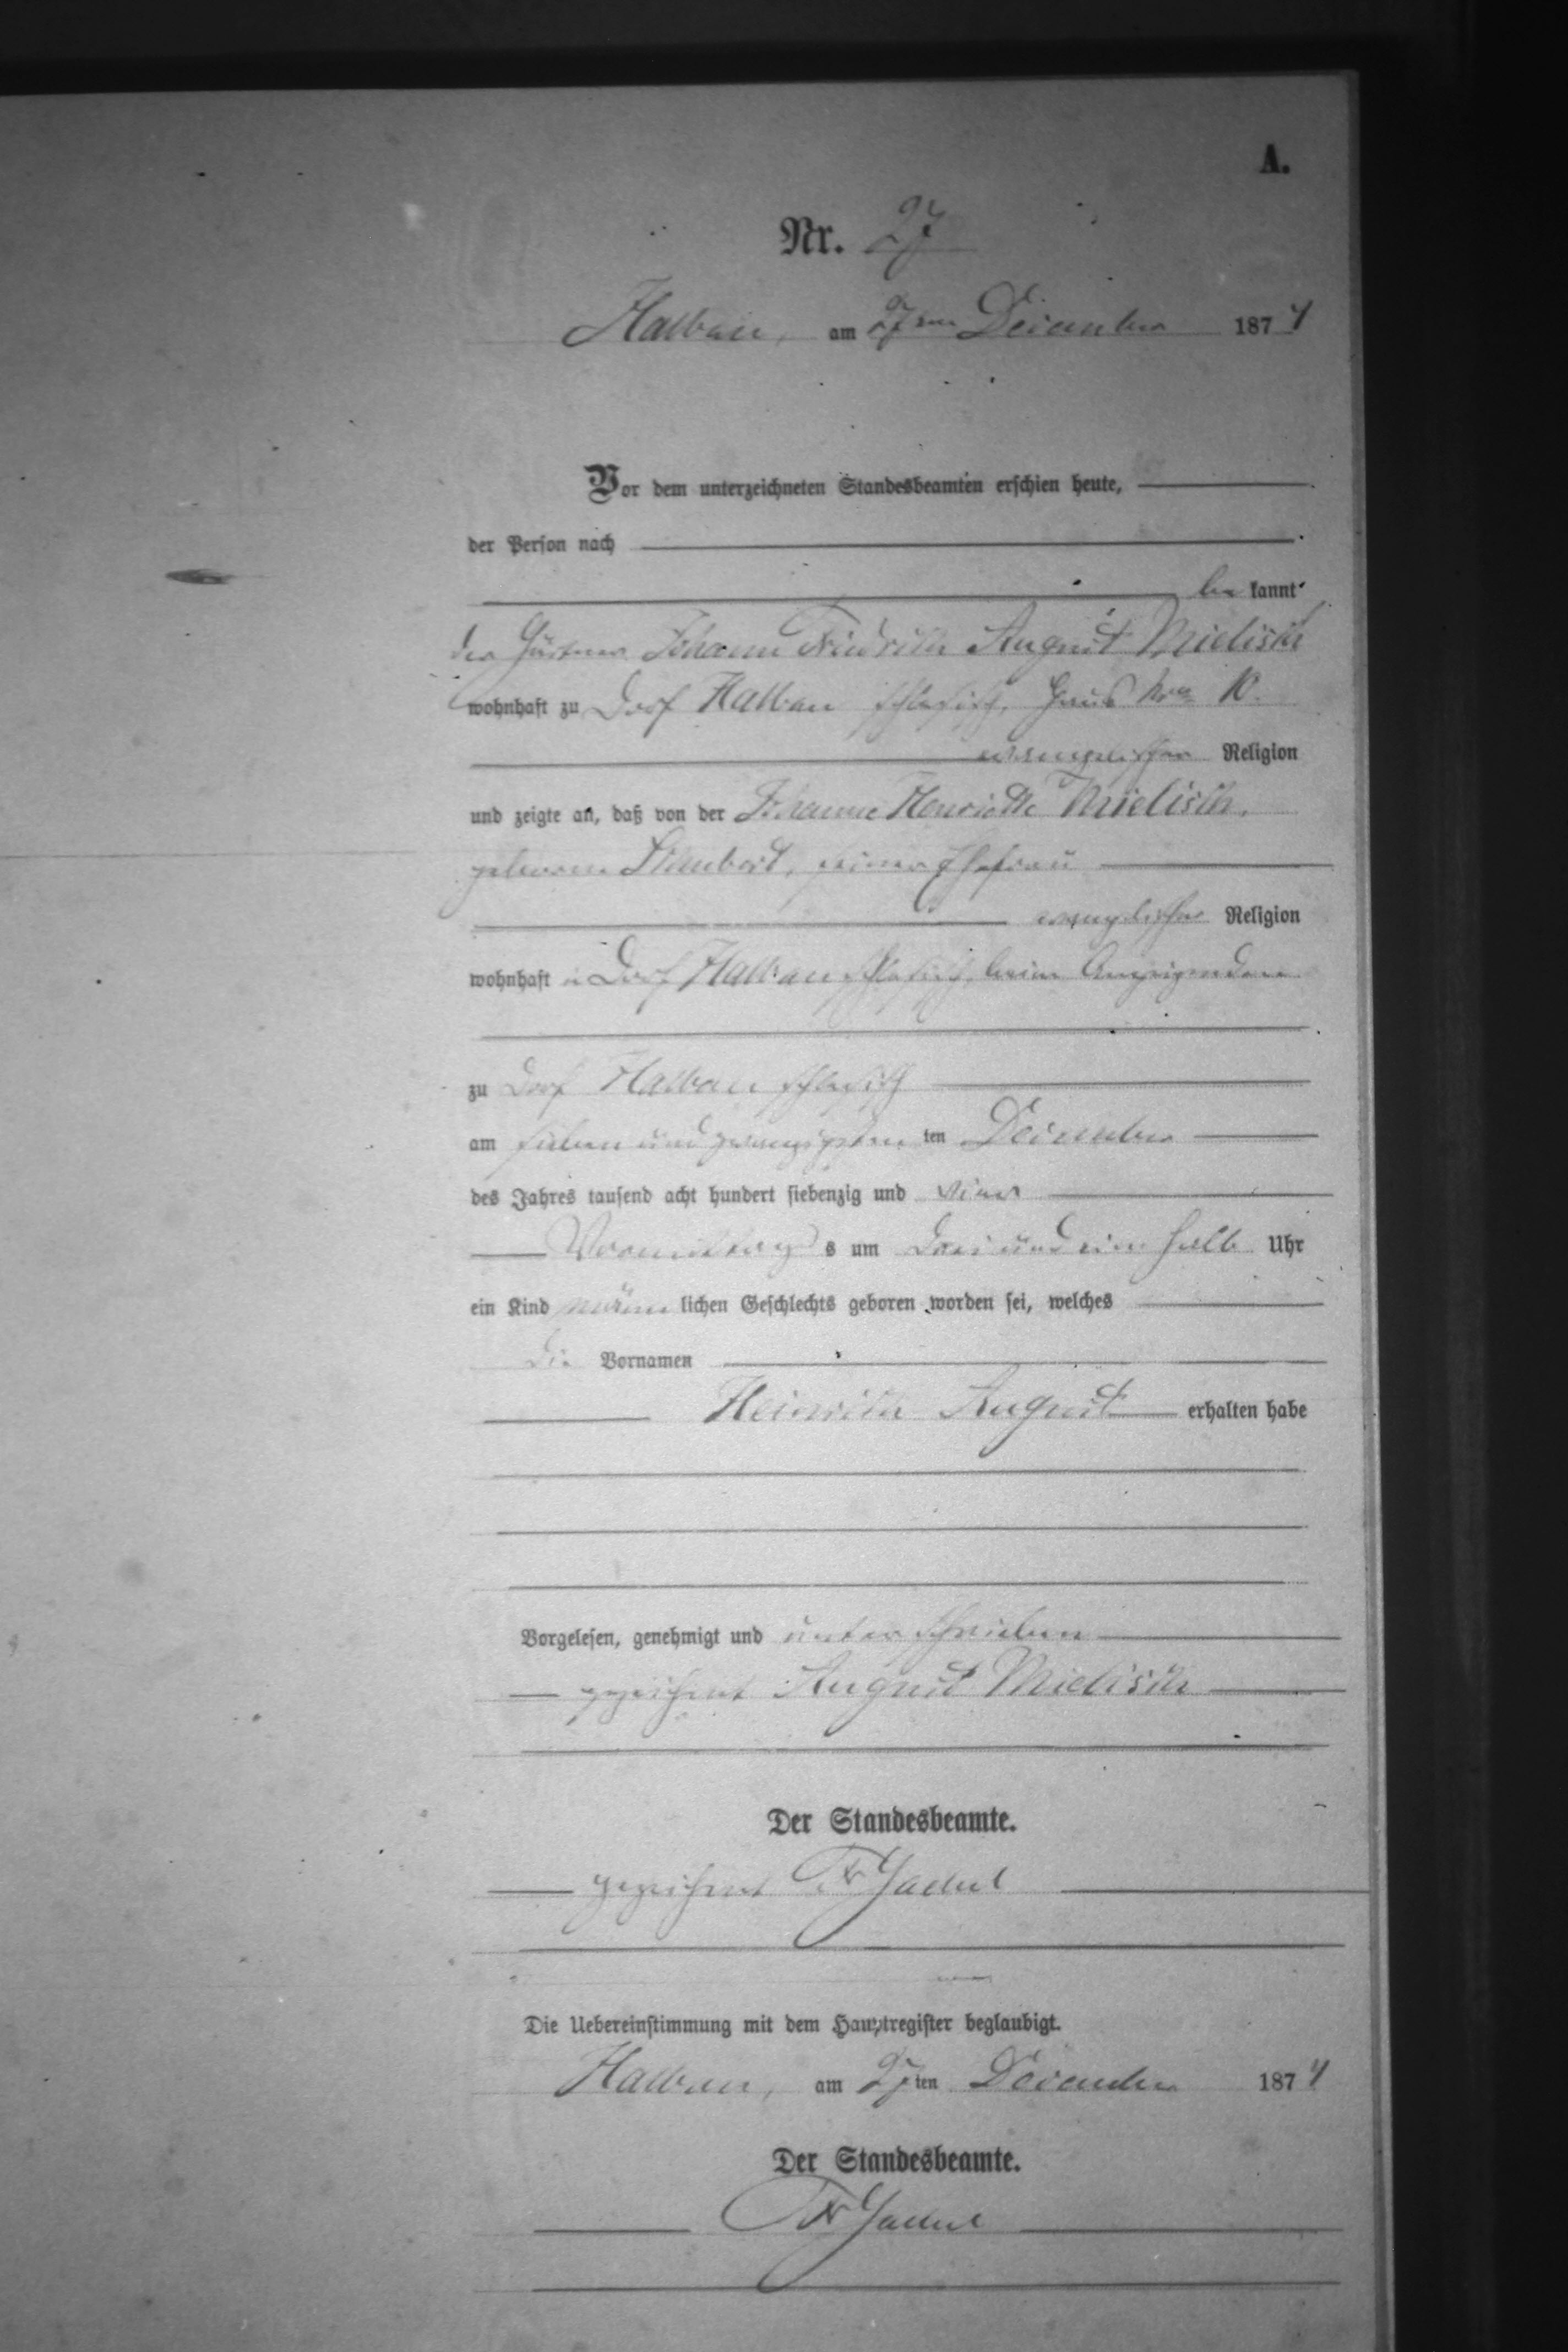 A.
Nr. 27
Halbau, am 27ten December 1874
Vor dem unterzeichneten Standesbeamten erschien heute,
der Person nach
be kannt
der Gärtner Johann Friedrich August Mielisch
wohnhaft zu Dorf Halbau schlesisch, Haus Nro. 10.
evangelischer Religion
und zeigte an, daß von der Johanne Henriette Mielisch,
geborene Staubert, seiner Ehefrau
evangelischer Religion
wohnhaft in Dorf Halbau schlesisch, beim Anzeigenden
zu Dorf Halbau schlesisch
am sieben und zwanzigsten ten December
des Jahres tausend acht hundert siebenzig und vier
Vormittag s um drei und ein halb Uhr
ein Kind männ lichen Geschlechts geboren worden sei, welches
die Vornamen
Heinrich August erhalten habe
Vorgelesen, genehmigt und unterschrieben
gezeichnet August Mielisch
Der Standesbeamte.
gezeichnet Fr
Die Uebereinstimmung mit dem Hauptregister beglaubigt.
Halbau, am 27ten December 1874
Der Standesbeamte.
Fr